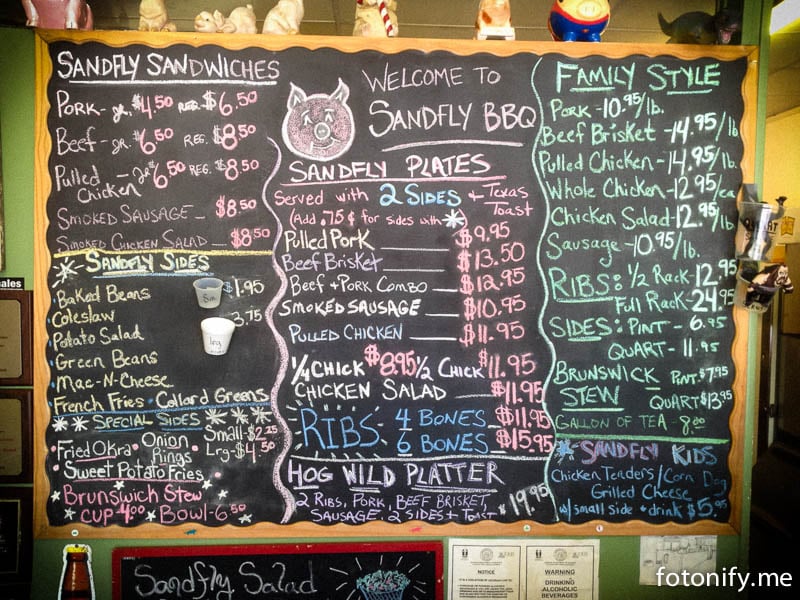 SANDFLY SANDWICHES
PORK - jr. $4.50 REG. $6.50
Beef - jr. $6.50 REG. $8.50
Pulled Chicken - jr. $6.50 REG. $8.50
SMOKED SAUSAGE - $8.50
SMOKED CHICKEN SALAD - $8.50
SANDFLY SIDES
Baked Beans
Sm $1.95
Coleslaw
lrg 3.75
Potato Salad
Green Beans
Mac-N-Cheese
French Fries · Collard Greens
SPECIAL SIDES
Fried Okra · Onion Rings
Small - $2.25
Lrg - $4.50
Sweet Potato Fries
Brunswick Stew
CUP - 4.00 Bowl - 6.50
WELCOME TO
SANDFLY BBQ
SANDFLY PLATES
Served with 2 SIDES + Texas Toast
(Add .75¢ for sides with *)
Pulled Pork $9.95
Beef Brisket $13.50
Beef + Pork Combo $12.95
SMOKED SAUSAGE $10.95
PULLED CHICKEN $11.95
1/4 CHICK $8.95 1/2 CHICK $11.95
CHICKEN SALAD $11.95
RIBS 4 BONES - $11.95
6 BONES - $15.95
HOG WILD PLATTER
2 RIBS, PORK, BEEF BRISKET
SAUSAGE, 2 SIDES + TOAST $19.95
FAMILY STYLE
PORK - 10.95/lb.
Beef Brisket - 14.95/lb
Pulled Chicken - 14.95/lb.
Whole Chicken - 12.95/ea
Chicken Salad - 12.95/lb.
Sausage - 10.95/lb.
RIBS: 1/2 RACK - 12.95
Full RACK - 24.95
SIDES: PINT - 6.95
QUART - 11.95
BRUNSWICK STEW PINT $7.95
QUART $13.95
GALLON OF TEA - 8.00
SANDFLY KIDS
Chicken Tenders / Corn Dog
Grilled Cheese
w/ small side + drink $5.95
Sandfly Salad
NOTICE
WARNING
DRINKING
ALCOHOLIC
BEVERAGES
fotonify.me